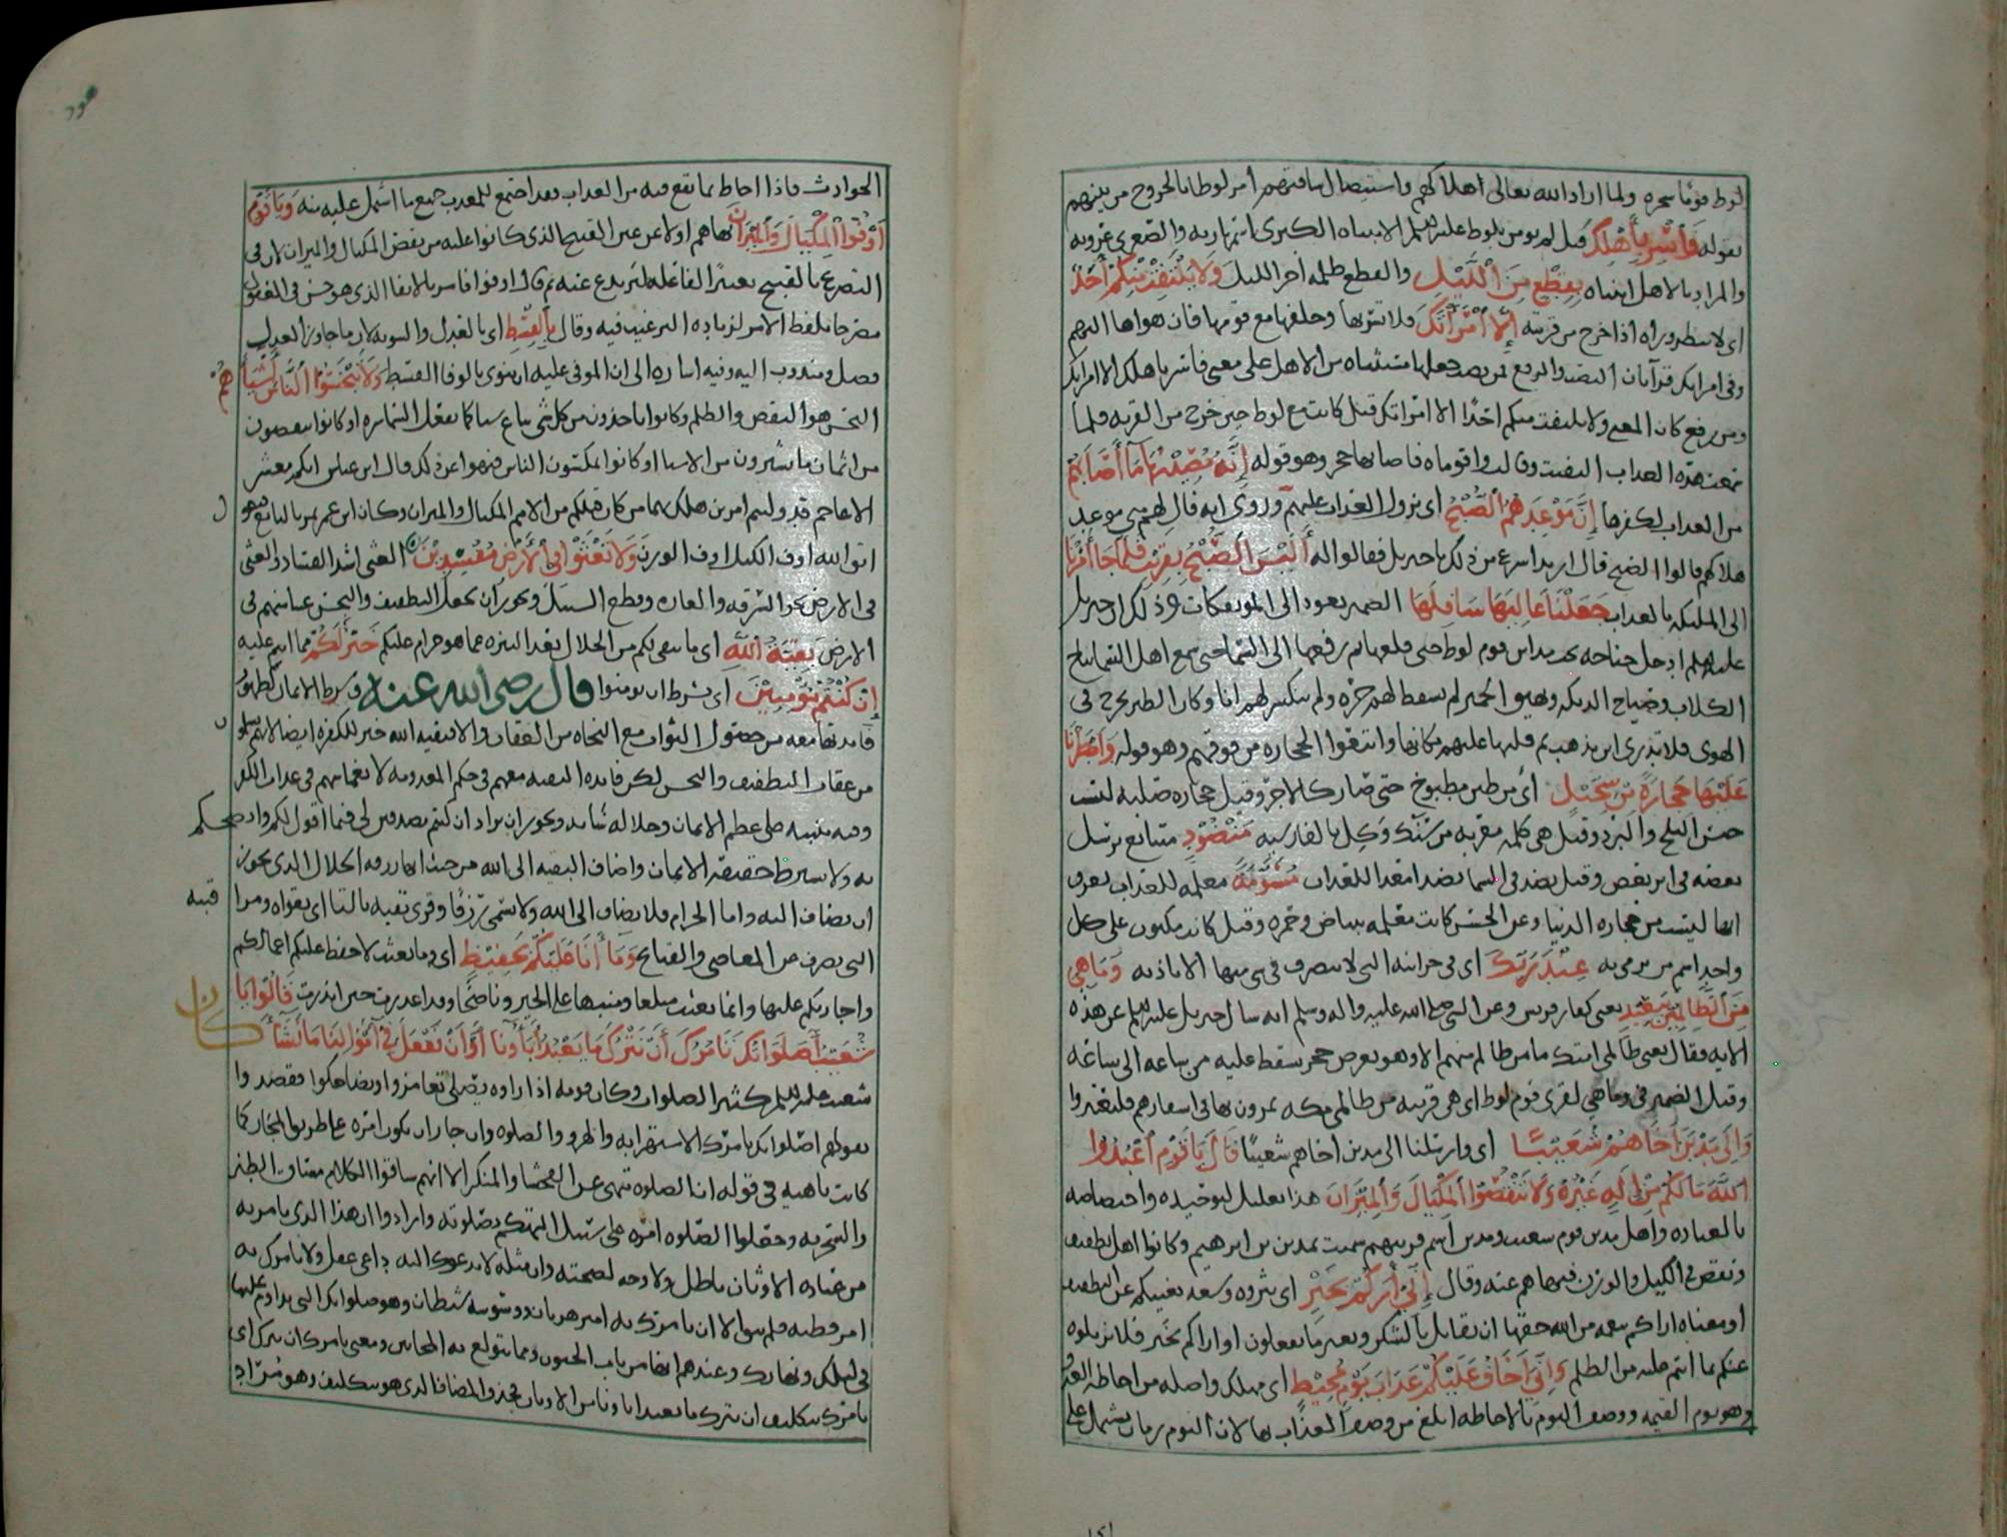 لوط قوما سحره ولما اراد الله تعالى اهلاكهم واستيصال شافتهم امر لوطا بالخروج من بينهم
بقوله فَأَسْرِ بِأَهْلِكَ قيل لم يومن بلوط عليه السلم الا ابنتاه الكبرى اسمها ريه والصغرى عروبه
والمراد بالاهل ابنتاه بِقِطْعٍ مِنَ الَّيْلِ والقطع ظلمه اخر الليل وَلَا يَلْتَفِتْ مِنْكُمْ أَحَدٌ
اى لا ينظر وراه اذا خرج من قريته إِلَّا امْرَأَتَكَ فلا تسر بها وخلفها مع قومها فان هواها اليهم
وفى امراتك قرآتان النصب والرفع فمن نصب جعلها مستثناه من الاهل على معنى فاسر باهلك الا امراتك
ومن رفع كان المعنى ولا يلتفت منكم احدًا الا امراتك قيل كانت مع لوط حين خرج من القريه فلما
سمعت هده العداب التفتت وقالت واقوماه فاصابها حجر وهو قوله إِنَّهُ مُصِيبُهَا مَا أَصَابَهُمْ
من العداب لكفرها إِنَّ مَوْعِدَهُمُ الصُّبْحُ اى نزول العذاب عليهم وروى انه قال لهم متى موعد
هلاكهم قالوا الصبح قال اريد اسرع من ذلك يا جبريل فقالوا له أَلَيْسَ الصُّبْحُ بِقَرِيبٍ فَلَمَّا جَا أَمْرُنَا
الى الملئكه بالعداب جَعَلْنَا عَالِيَهَا سَافِلَهَا الضمير يعود الى الموتفكات وذكر ان جبريل
عليه السلم ادخل جناحه تحت مداين قوم لوط حتى قلعها ثم رفعها الى السما حتى سمع اهل السما نباح
الكلاب وصياح الديكه ونهيق الحمير لم يسقط لهم جره ولم ينكسر لهم انا وكان الطير يخرج فى
الهوى فلا تدرى اين يذهب ثم قلبها عليهم مكانها واتبعوا الحجاره من فوقهم وهو قوله وَأَمْطَرْنَا
عَلَيْهَا حِجَارَةً مِنْ سِجِّيلٍ أى من طين مطبوخ حتى صار كالاجر وقيل حجاره صلبه ليست
من الثلج والبرد وقيل هى كلمه معربه من سنك وكل بالفارسيه مَنْضُودٍ متتابع يرسل
بعضه فى اثر بعض وقيل نضد فى السما نضدا معدا للعذاب مُسَوَّمَةً معلمه للعذاب يعرف
انها ليست من حجاره الدنيا وعن الحسن كانت معلمه ببياض وحمره وقيل كان مكتوب على كل
واحد اسم من يرمى به عِنْدَ رَبِّكَ اى فى خزائنه التى لا يتصرف فى شى منها الا باذنه وَمَا هِيَ
مِنَ الظَّالِمِينَ بِبَعِيدٍ يعنى كفار قريش وعن النبى صلى الله عليه واله وسلم انه سال جبريل عليه السلم عن هذه
الايه فقال يعنى ظالمى امتك ما من ظالم منهم الا وهو بعرض حجر يسقط عليه من ساعه الى ساعة
وقيل الضمير فى وما هى لقرى قوم لوط اى هى قريبه من ظالمى مكه يمرون بها فى اسفارهم فليعتبروا
وَإِلَى مَدْيَنَ أَخَاهُمْ شُعَيْبًا اى وارسلنا الى مدين اخاهم شعيبًا قَالَ يَا قَوْمِ اعْبُدُوا
اللَّهَ مَا لَكُمْ مِنْ إِلَهٍ غَيْرُهُ وَلَا تَنْقُصُوا الْمِكْيَالَ وَالْمِيزَانَ هذا تعليل لتوحيده واختصاصه
بالعباده واهل مدين قوم شعيب ومدين اسم قريتهم سميت بمدين بن ابرهيم وكانوا اهل تطفيف
ونقص فى الكيل والوزن فنهاهم عنه وقال إِنِّي أَرَاكُمْ بِخَيْرٍ اى بثروه وسعه تغنيكم عن التطفيف
او معناه اراكم بنعمه من الله حقها ان تقابل بالشكر وبغير ما تفعلون او اراكم بخير فلا تزيلوه
عنكم بما انتم عليه من الظلم وَإِنِّي أَخَافُ عَلَيْكُمْ عَذَابَ يَوْمٍ مُحِيطٍ اى مهلك واصله من احاطه العدو
وهو يوم القيمه ووصف اليوم بالاحاطه ابلغ من وصف العذاب بها لان اليوم زمان يشتمل على
هود
الحوادث فاذا احاط بما يقع فيه من العداب فقد اجتمع للمعذب جميع ما اشتمل عليه منه وَيَا قَوْمِ
أَوْفُوا الْمِكْيَالَ وَالْمِيزَانَ نهاهم اولا عن عين القبيح الذى كانوا عليه من نقص المكيال والميزان لان فى
التصريح بالقبيح تعييرًا لفاعله ليرتدع عنه ثم قال اوفوا فامر بالايفا الذى هو حسن فى العقول
مصرحا بلفظ الامر لزياده الترغيب فيه وقال بِالْقِسْطِ اى بالعدل والسويه لان ما جاوز العدل
فضل ومندوب اليه وفيه اشاره الى ان الموفى عليه ان ينوى بالوفا القسط وَلَا تَبْخَسُوا النَّاسَ أَشْيَاءَهُمْ
البخس هو النقص والظلم وكانوا ياخذون من كل شى يباع شيا كما تفعل السماسره او كانوا ينقصون
من اثمان ما يشترون من الاشيا او كانوا يمكسون الناس فنهوا عن ذلك قال ابن عباس انكم معشر
الاعاجم قد وليتم امرين هلك بهما من كان قبلكم من الامم المكيال والميزان وكان ابن عمر يمر بالبايع فيقول
اتق الله اوف الكيل اوف الوزن وَلَا تَعْثَوْا فِي الْأَرْضِ مُفْسِدِينَ العثى اشد الفساد والعثى
فى الارض نحو السرقه والغاره وقطع السبيل ويجوز ان يجعل التطفيف والبخس عثيا منهم فى
الارض بَقِيَّةُ اللَّهِ اى ما يبقى لكم من الحلال بعد التنزه عما هو حرام عليكم خَيْرٌ لَكُمْ مما انتم عليه
إِنْ كُنْتُمْ مُؤْمِنِينَ اى بشرط ان تومنوا قال رضى الله عنه وشرط الايمان لظهور
فايدتها معه من حصول الثواب مع النجاه من العقاب والا فبقيه الله خير للكفره ايضا لانهم يسلمون
من عقاب التطفيف والبخس لكن فايده البقيه معهم فى حكم المعدومه لانغماسهم فى عداب الكفر
وفيه تنبيه على عظم الايمان وجلاله شانه ويجوز ان يراد ان كنتم مصدقين لى فيما اقول لكم وانصحكم
به ولا يشترط حقيقه الايمان واضاف البقيه الى الله من حيث انها رزقه الحلال الذى يجوز
ان يضاف اليه واما الحرام فلا يضاف الى الله ولا يسمى رزقًا وقرى تقيه بالتا اى تقواه ومراقبته
التى تصرف عن المعاصى والقبايح وَمَا أَنَا عَلَيْكُمْ بِحَفِيظٍ اى وما بعثت لاحفظ عليكم اعمالكم
واجازيكم عليها وانما بعثت مبلغا ومنبها على الخير وناصحًا وقد اعذرت حين انذرت قَالُوا يَا
شُعَيْبُ أَصَلَوَاتُكَ تَأْمُرُكَ أَنْ نَتْرُكَ مَا يَعْبُدُ آبَاؤُنَا أَوْ أَنْ نَفْعَلَ فِي أَمْوَالِنَا مَا نَشَاءُ كان
شعيب عليه السلم كثير الصلوات وكان قومه اذا راوه يصلى تغامزوا وتضاحكوا فقصدوا
بقولهم اصلواتك تامرك الاستهزا به والهزو والصلوه وان جاز ان تكون امره على طريق المجاز كما
كانت ناهيه فى قوله ان الصلوه تنهى عن الفحشا والمنكر الا انهم ساقوا الكلام مساق الطنز
والسخريه وجعلوا الصلوه امره على سبيل التهكم بصلوته وارادوا ان هذا الذى يامر به
من عباده الاوثان باطل ولا وجه لصحته وان مثله لا يدعوك اليه داعى عقل ولا يامرك به
امر فطنه فلم يبق الا ان يامرك به امر هذيان ووسوسه شيطان وهو صلواتك التى تداوم عليها
فى ليلك ونهارك وعندهم انها من باب الجنون ومما يتولع به المجانين ومعنى تامرك ان نترك اى
تامرك بتكليف ان نترك ما يعبد اباونا من الاوثان فحذف المضاف الذى هو بتكليف وهو مراد